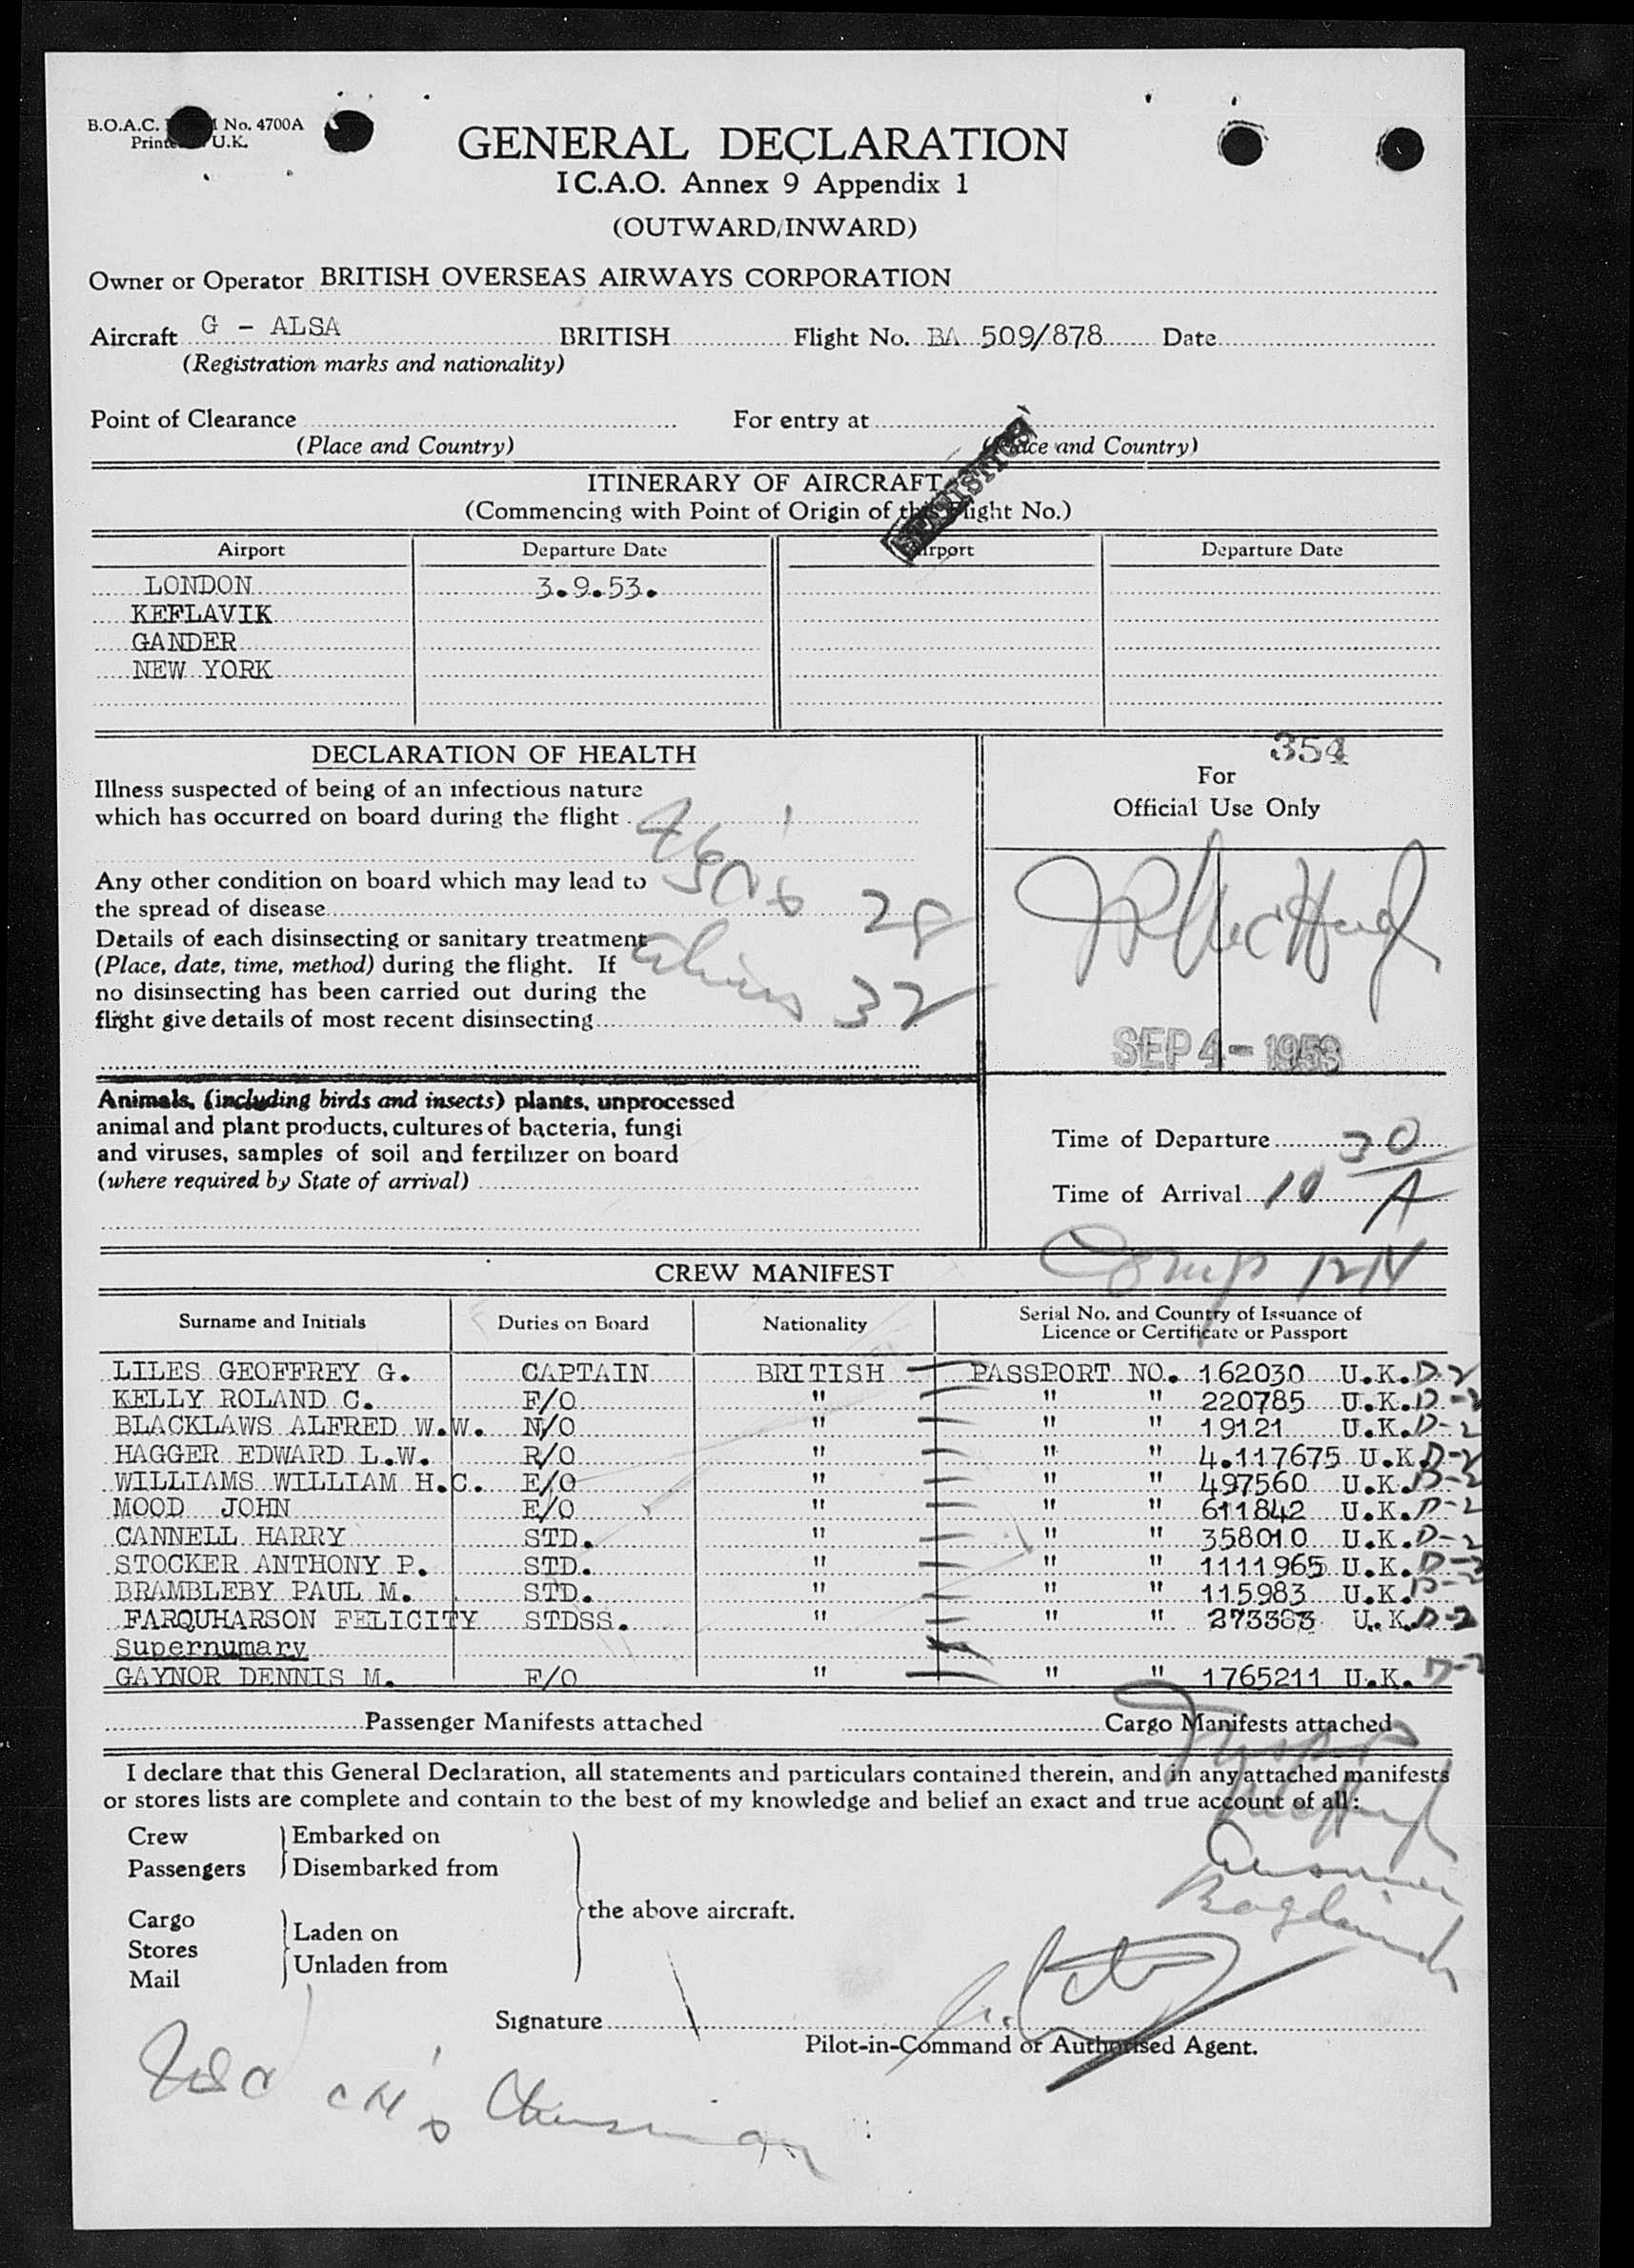 B.O.A.C. No. 4700A
U.K.
GENERAL DECLARATION
I C.A.O. Annex 9 Appendix 1
(OUTWARD/INWARD)
Owner or Operator BRITISH OVERSEAS AIRWAYS CORPORATION
Aircraft G - ALSA BRITISH Flight No. BA 509/878 Date
(Registration marks and nationality)
Point of Clearance For entry at
(Place and Country) (Place and Country)
STATISTICS
ITINERARY OF AIRCRAFT
(Commencing with Point of Origin of this Flight No.)
Airport Departure Date Airport Departure Date
LONDON 3.9.53.
KEFLAVIK
GANDER
NEW YORK
354
DECLARATION OF HEALTH
For
Official Use Only
Illness suspected of being of an infectious nature
which has occurred on board during the flight
Any other condition on board which may lead to
the spread of disease 28
Details of each disinsecting or sanitary treatment
(Place, date, time, method) during the flight. If
no disinsecting has been carried out during the
flight give details of most recent disinsecting
Aliens 32
SEP 4 - 1953
Animals, (including birds and insects) plants, unprocessed
animal and plant products, cultures of bacteria, fungi
and viruses, samples of soil and fertilizer on board
(where required by State of arrival)
Time of Departure
Time of Arrival 10 30/A
Comp
CREW MANIFEST
Surname and Initials Duties on Board Nationality Serial No. and Country of Issuance of
Licence or Certificate or Passport
LILES GEOFFREY G. CAPTAIN BRITISH PASSPORT NO. 162030 U.K. D-2
KELLY ROLAND C. F/O " " " 220785 U.K. D-2
BLACKLAWS ALFRED W.W. N/O " " " 19121 U.K. D-2
HAGGER EDWARD L.W. R/O " " " 4.117675 U.K D-2
WILLIAMS WILLIAM H.C. E/O " " " 497560 U.K. D-2
MOOD JOHN E/O " " " 611842 U.K. D-2
CANNELL HARRY STD. " " " 358010 U.K. D-2
STOCKER ANTHONY P. STD. " " " 1111965 U.K. D-2
BRAMBLEBY PAUL M. STD. " " " 115983 U.K. D-2
FARQUHARSON FELICITY STDSS. " " " 273383 U.K. D-2
Supernumary
GAYNOR DENNIS M. F/O " " " 1765211 U.K. D-2
Passenger Manifests attached Cargo Manifests attached
I declare that this General Declaration, all statements and particulars contained therein, and in any attached manifests
or stores lists are complete and contain to the best of my knowledge and belief an exact and true account of all:
Crew
Passengers
Embarked on
Disembarked from
Cargo
Stores
Mail
Laden on
Unladen from
the above aircraft.
Signature
Pilot-in-Command or Authorised Agent.